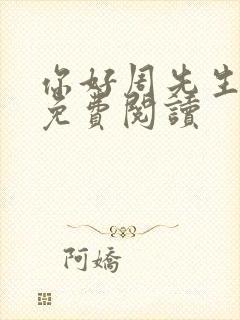 你好周先生
免費閱讀
阿嬌